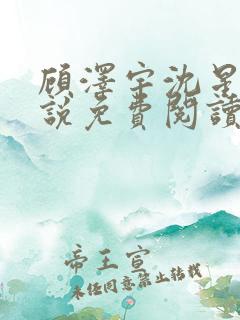 顾澤宇沈星
説免費閱讀
帝王宣
未经同意禁止转载